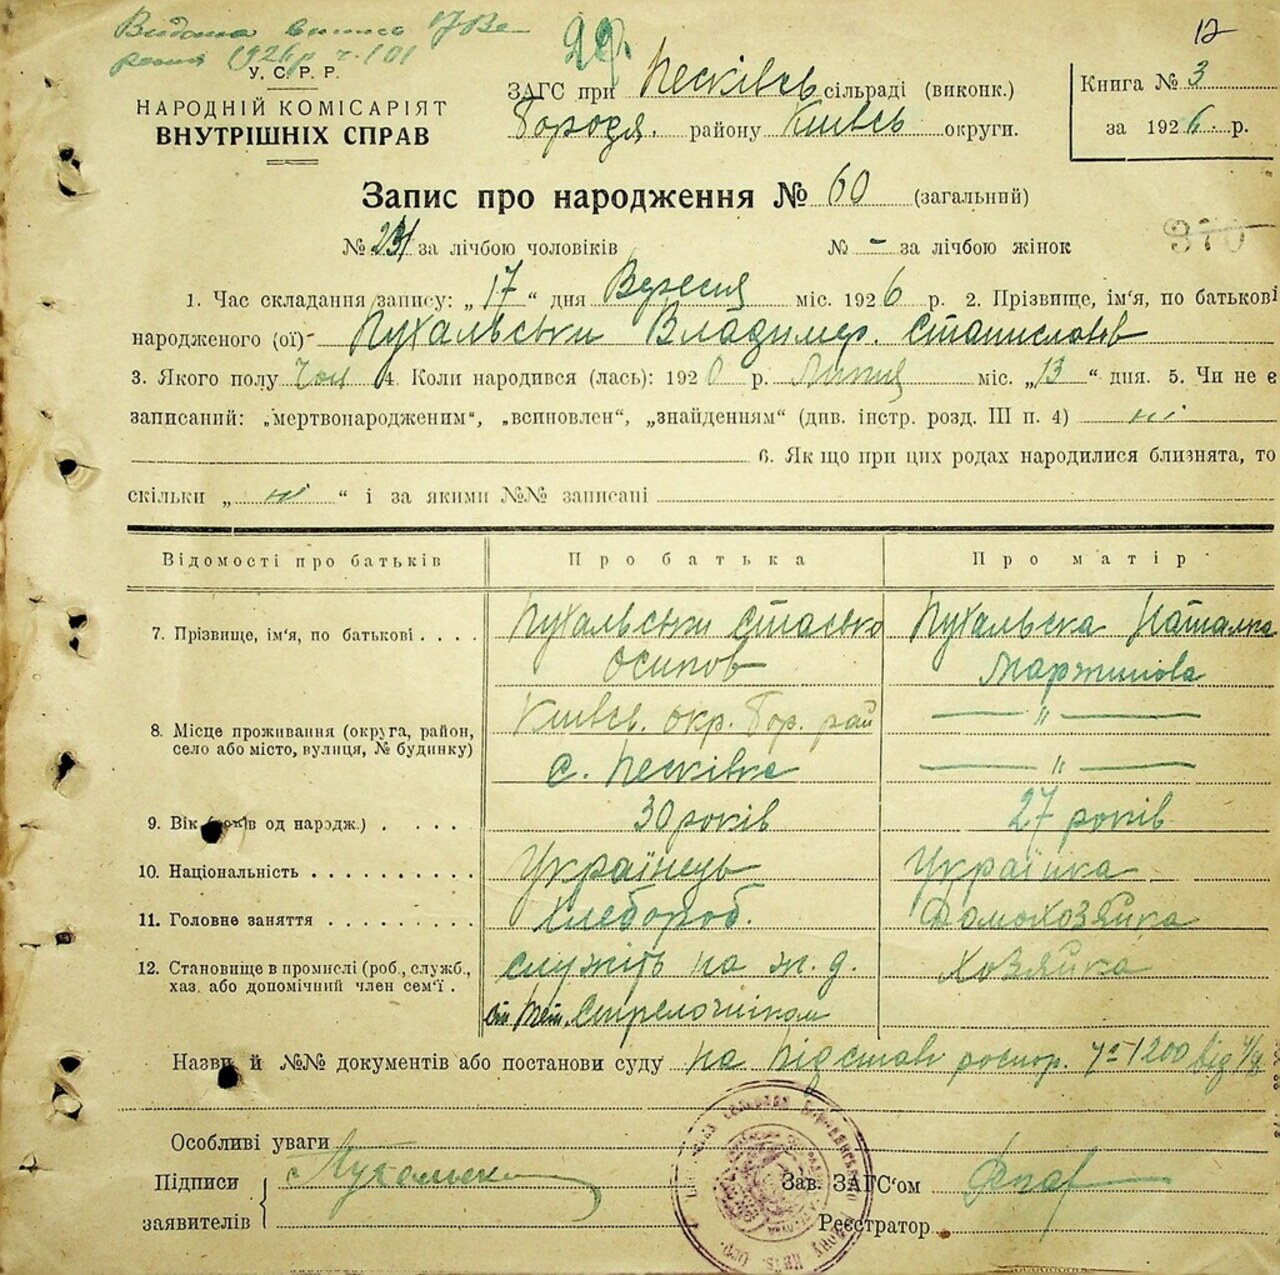 Видана випись 17 Ве-
ресня 1926 р ч. 101
12
У. С. Р. Р.
НАРОДНІЙ КОМІСАРІЯТ
ВНУТРІШНІХ СПРАВ
29.
ЗАГС при Песківсь сільраді (виконк.)
Бородя. району Київсь округи.
Книга № 3
за 1926 р.
Запис про народження № 60 (загальний)
№ 231 за лічбою чоловіків № - за лічбою жінок
370
1. Час складання запису: „17“ дня Вересня міс. 1926 р. 2. Прізвище, ім‘я, по батькові
народженого (ої) Пухальськи Владимер. Станиславов
3. Якого полу Чол 4. Коли народився (лась): 1920 р. Липня міс. „13“ дня. 5. Чи не є
записаний: „мертвонародженим“, „всиновлен“, „знайденням“ (див. інстр. розд. III п. 4) ні
6. Як що при цих родах народилися близнята, то
скільки „ні“ і за якими №№ записані
Відомості про батьків Про батька Про матір
7. Прізвище, ім‘я, по батькові . . . . Пухальськи Стасько Пухальска Наталка
Осипов Мартинова
8. Місце проживання (округа, район, Київсь. окр. Бор. рай — " —
село або місто, вулиця, № будинку) с. Песківка — " —
9. Вік (років од народж.) . . . . 30 років 27 років
10. Національність . . . . . . . . . . Українець Українка
11. Головне заняття . . . . . . . . . Хлебороб. Домохозяйка
12. Становище в промислі (роб., служб., служіть на ж. д. хозяйка
хаз. або допомічний член сем‘ї . ст Тет. Стрелочніком
Назви й №№ документів або постанови суду на підставі роспор. 1200 від
Особливі уваги
Підписи с Пухальски Зав. ЗАГС‘ом
заявителів Реєстратор